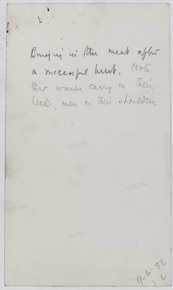 Bringing in the meat after
a successful hunt. Note
that women carry on their
head, men on their shoulders